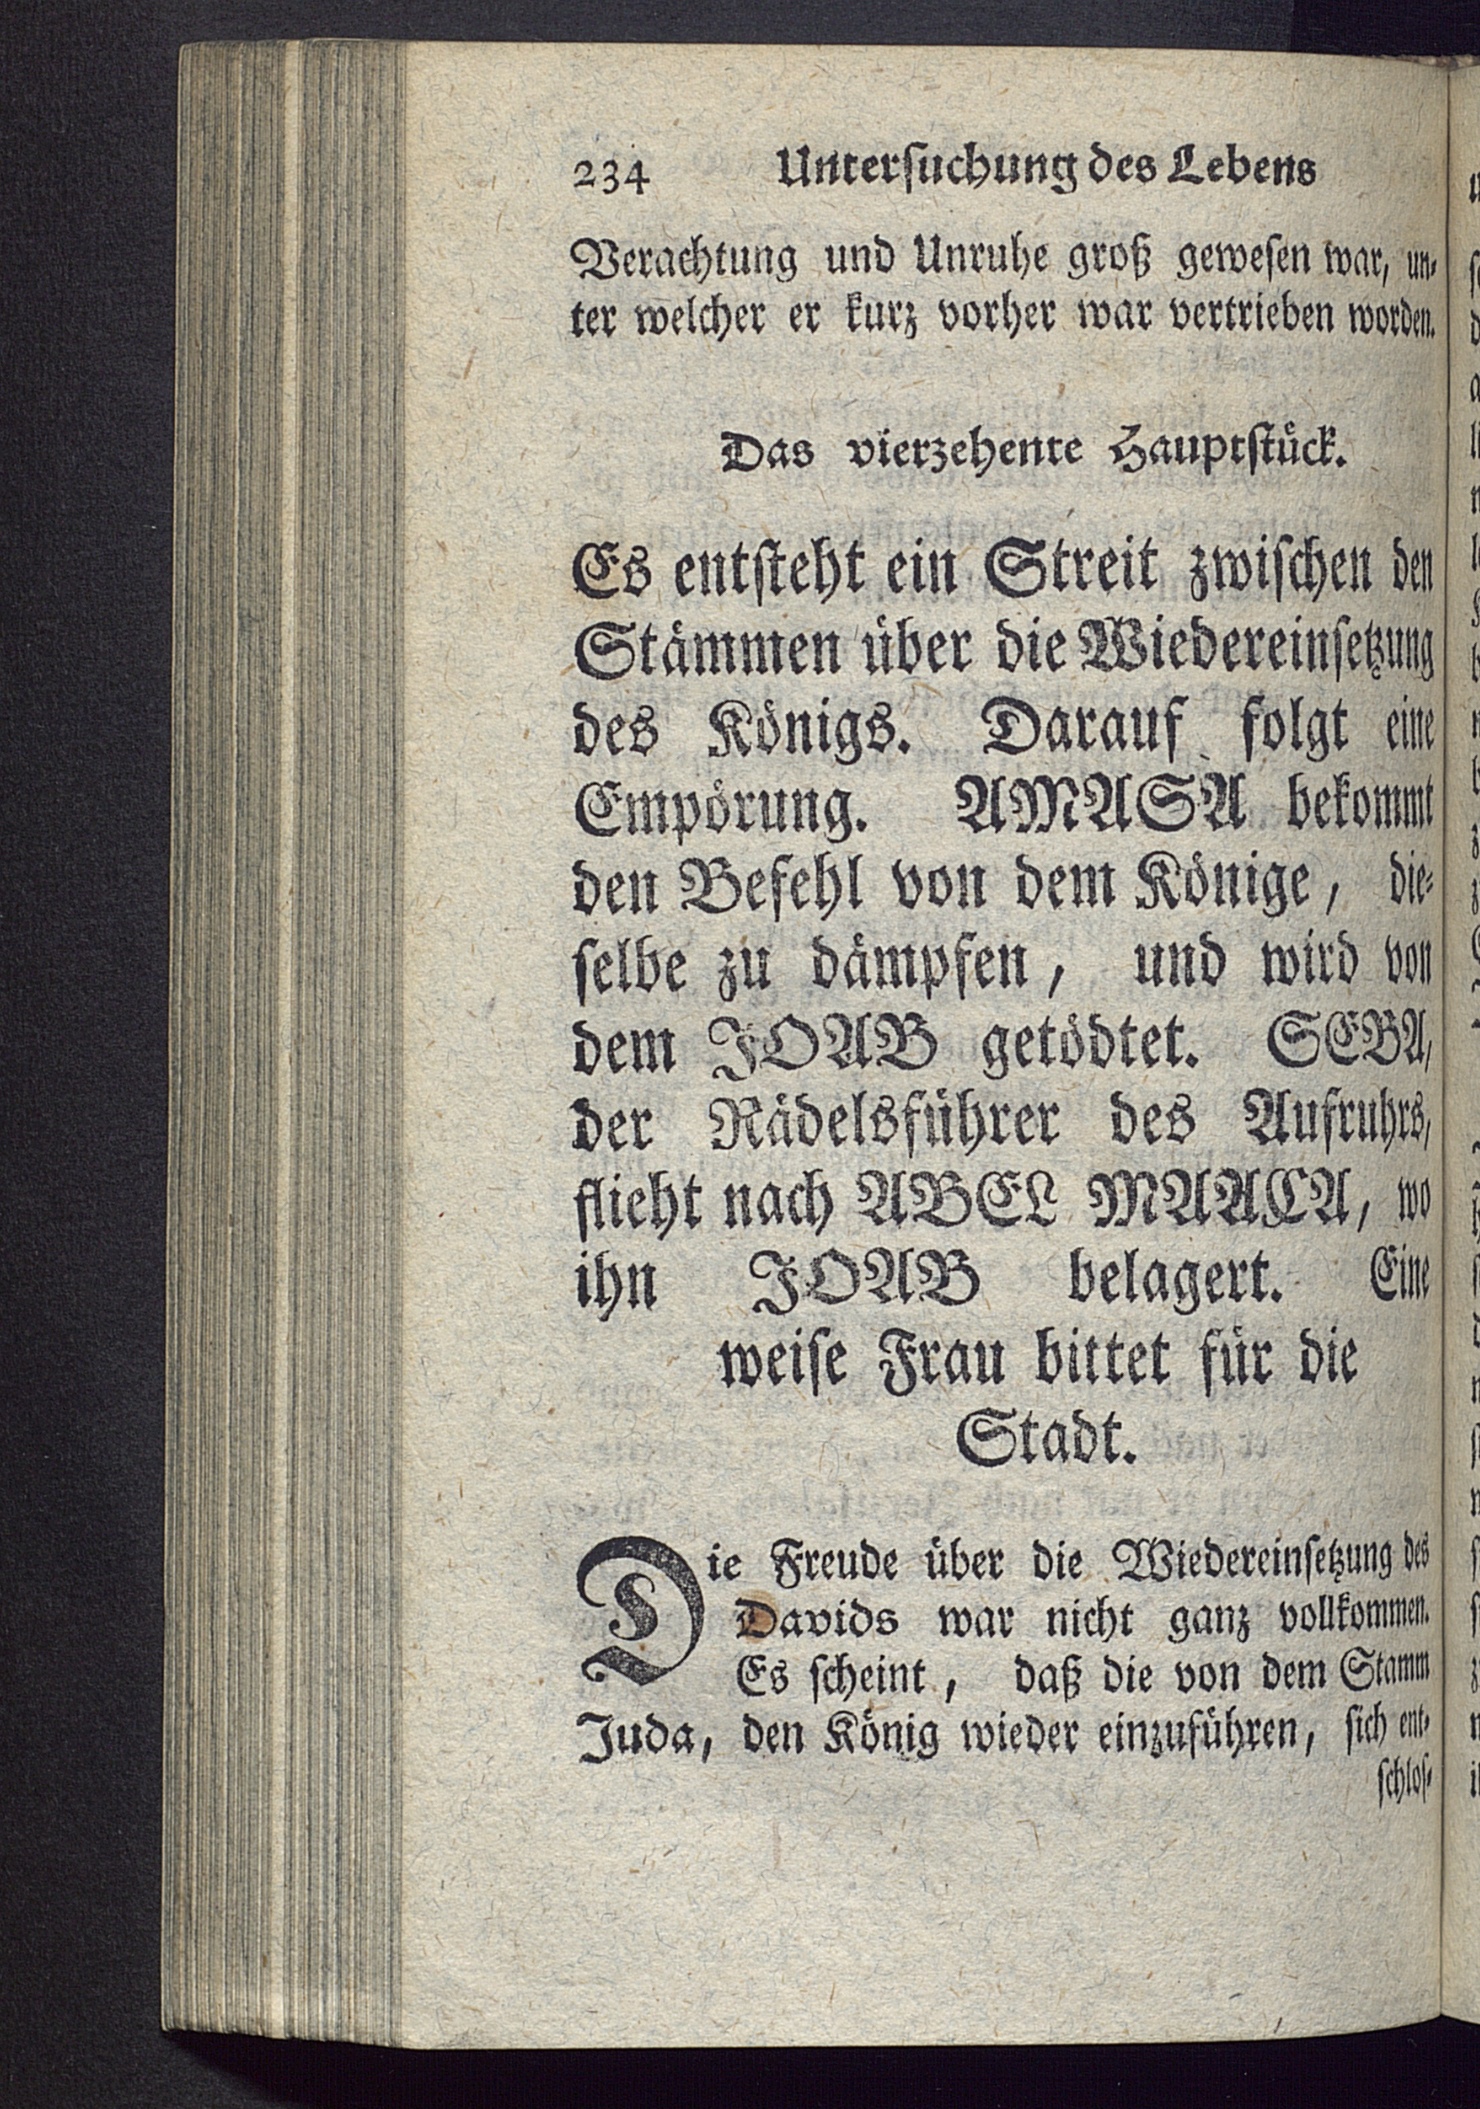 234 Untersuchung des Lebens
Verachtung und Unruhe groß gewesen war, un-
ter welcher er kurz vorher war vertrieben worden.
Das vierzehente Hauptstück.
Es entsteht ein Streit zwischen den
Stämmen über die Wiedereinsetzung
des Königs. Darauf folgt eine
Empörung. AMASA bekommt
den Befehl von dem Könige, die-
selbe zu dämpfen, und wird von
dem JOAB getödtet. SEBA,
der Rädelsführer des Aufruhrs,
flieht nach ABEL MAACA, wo
ihn JOAB belagert. Eine
weise Frau bittet für die
Stadt.
Die Freude über die Wiedereinsetzung des
Davids war nicht ganz vollkommen.
Es scheint, daß die von dem Stamm
Juda, den König wieder einzuführen, sich ent-
schlos-